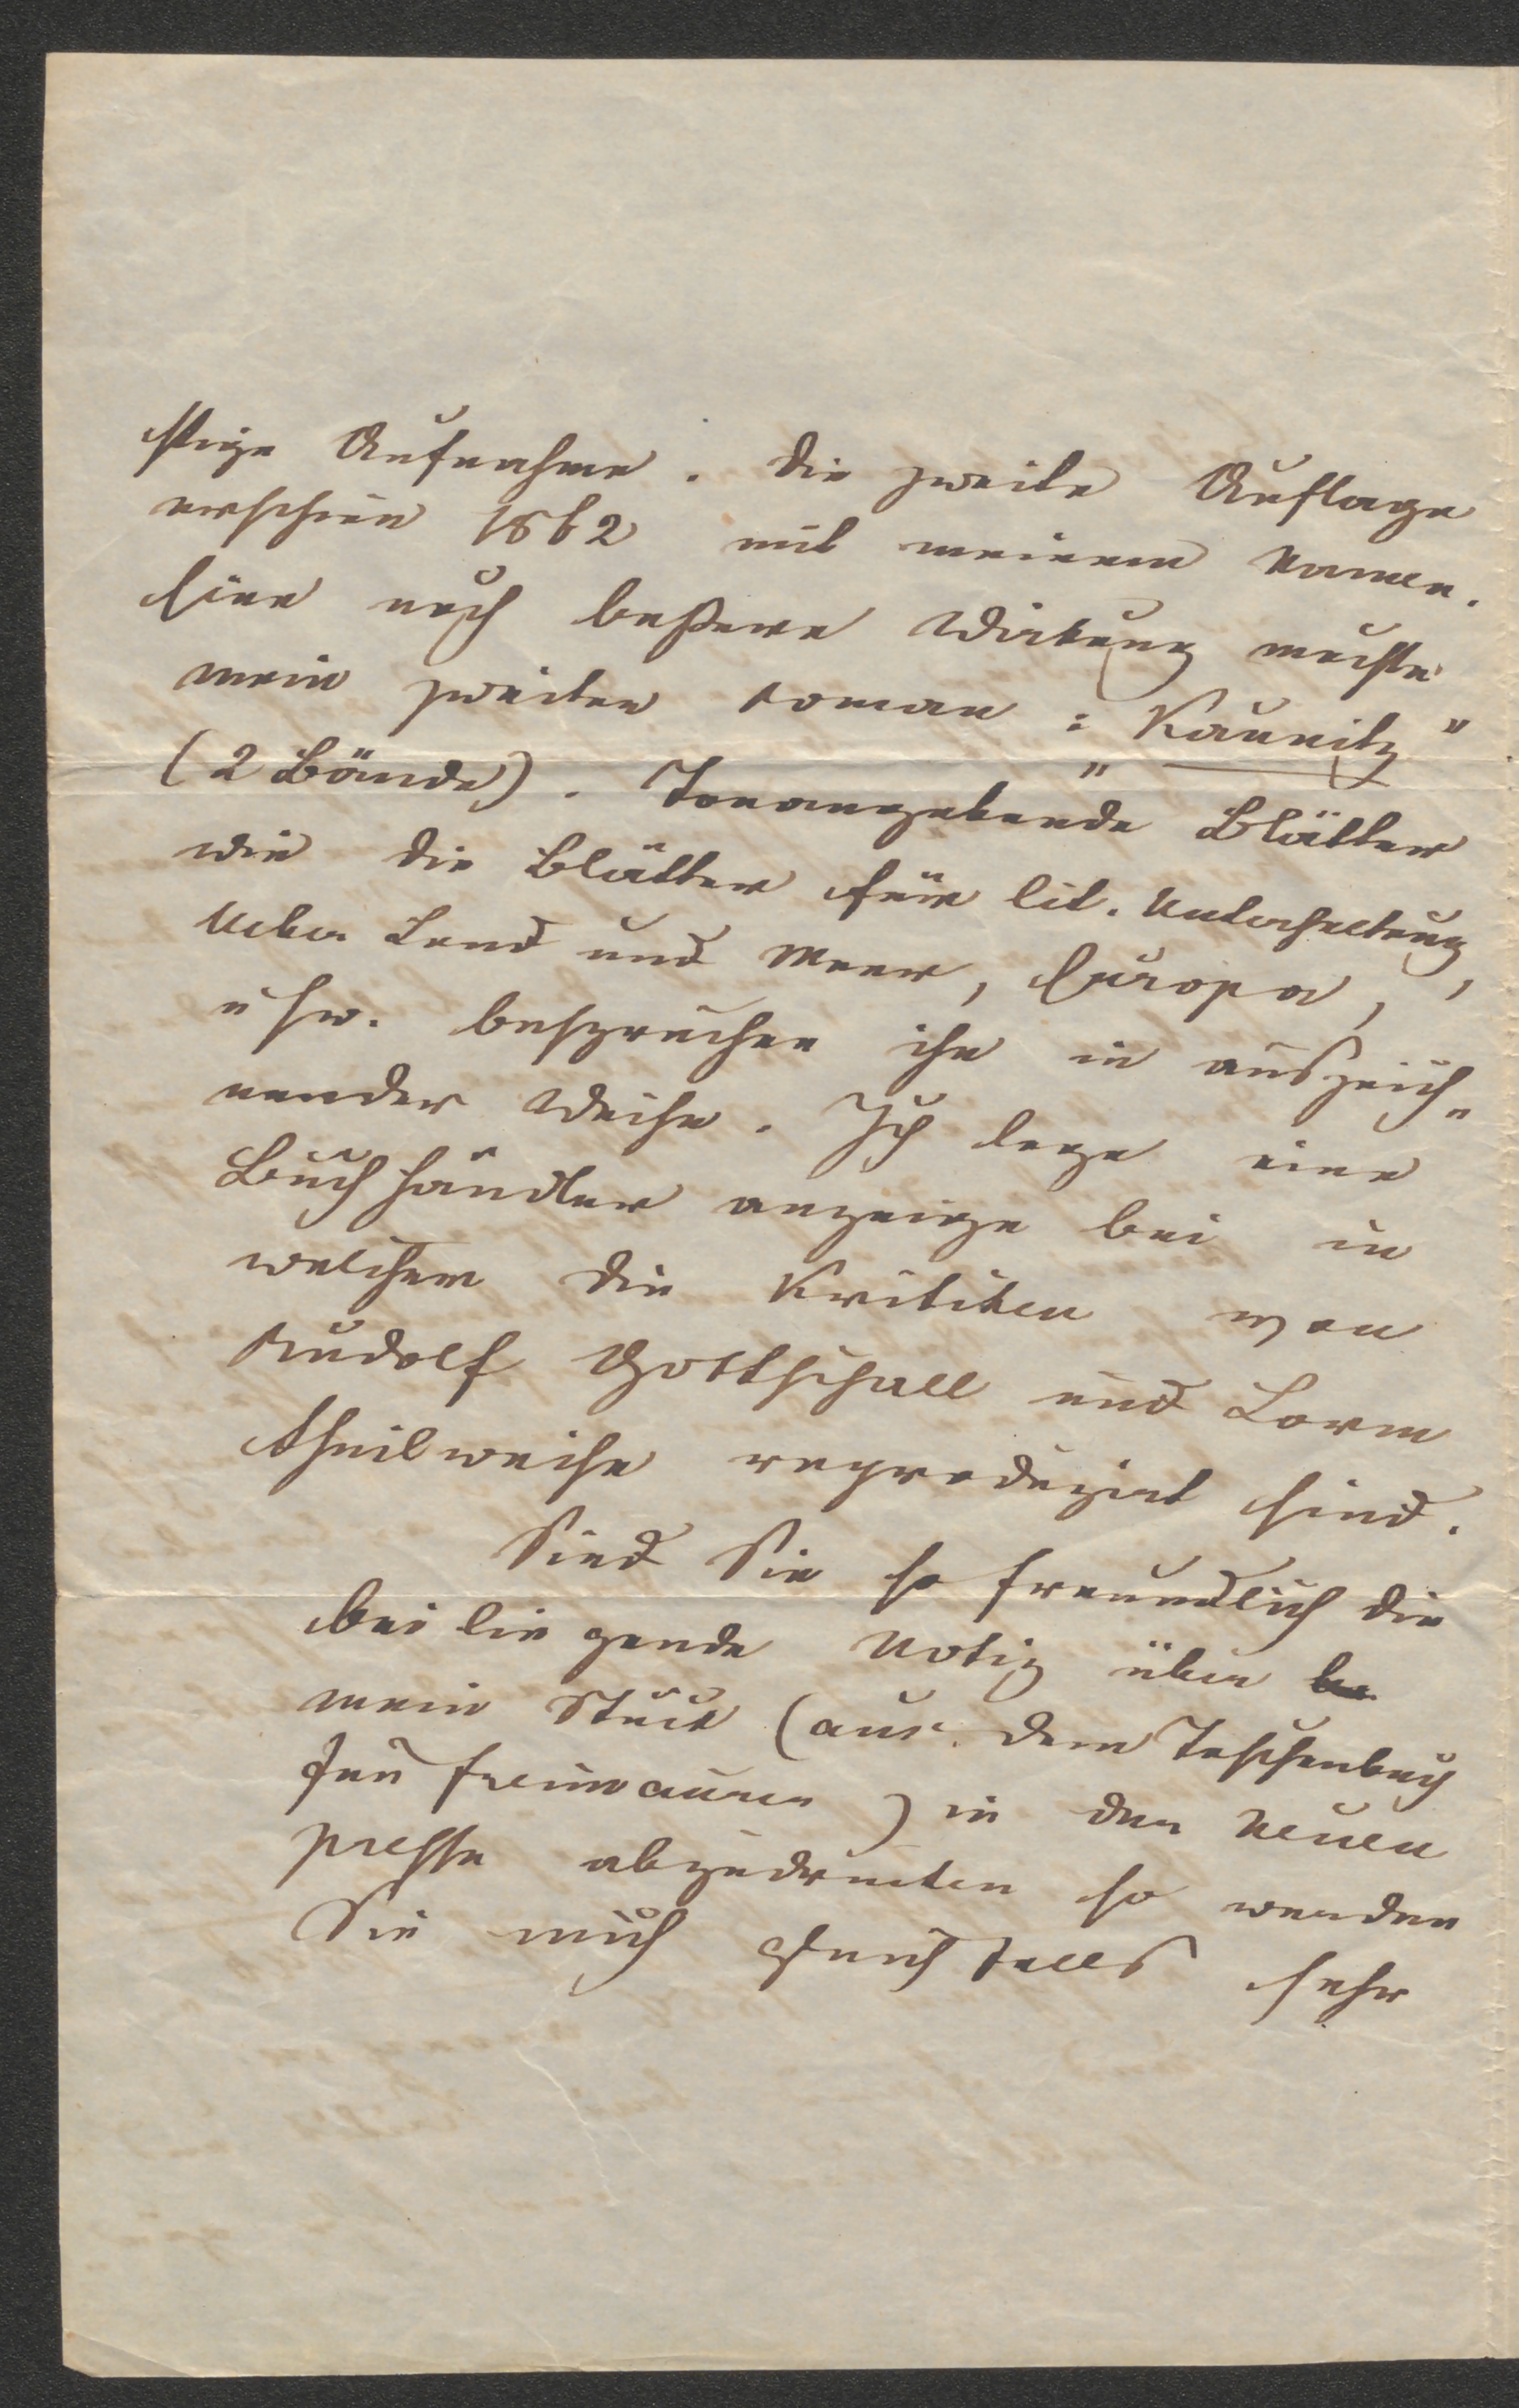 stige Aufnahme. Die zweite Auflage
erschien 1862 mit meinem Namen.
Eine noch beßere Wirkung machte
mein zweiter Roman: „Kaunitz"
(2 Bände). Tonangebende Blätter
wie die Blätter für lit. Unterhaltung,
Ueber Land und Meer, Europa,
usw. besprachen ihn in auszeich„
nender Weise. Ich lege eine
Buchhändler anzeige bei in
welcher die Kritiken von
Rudolf Gottschall und Lorm
theilweise reproduzirt sind.
Sind Sie so freundlich die
bei liegende Notiz über be
mein Stück (aus dem Taschenbuch
für Freimaurer) in der Neuen
Presse abzudrucken so werden
Sie mich gleichfalls sehr